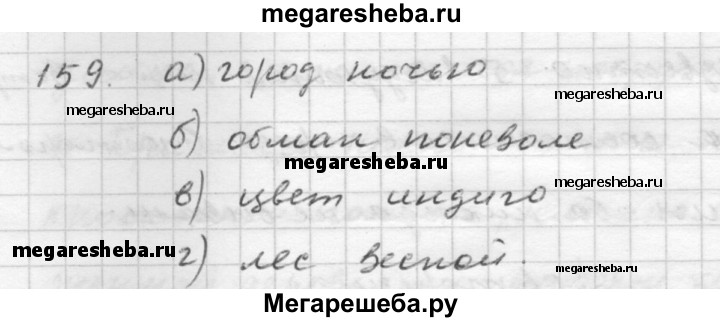 megaresheba.ru
159. а) город ночью
megaresheba.ru
megaresheba.ru
б) обман поневоле
megaresheba.ru
в) цвет индиго
megaresheba.ru
megaresheba.ru
г) лес весной.
megaresheba.ru
Мегарешеба.ру